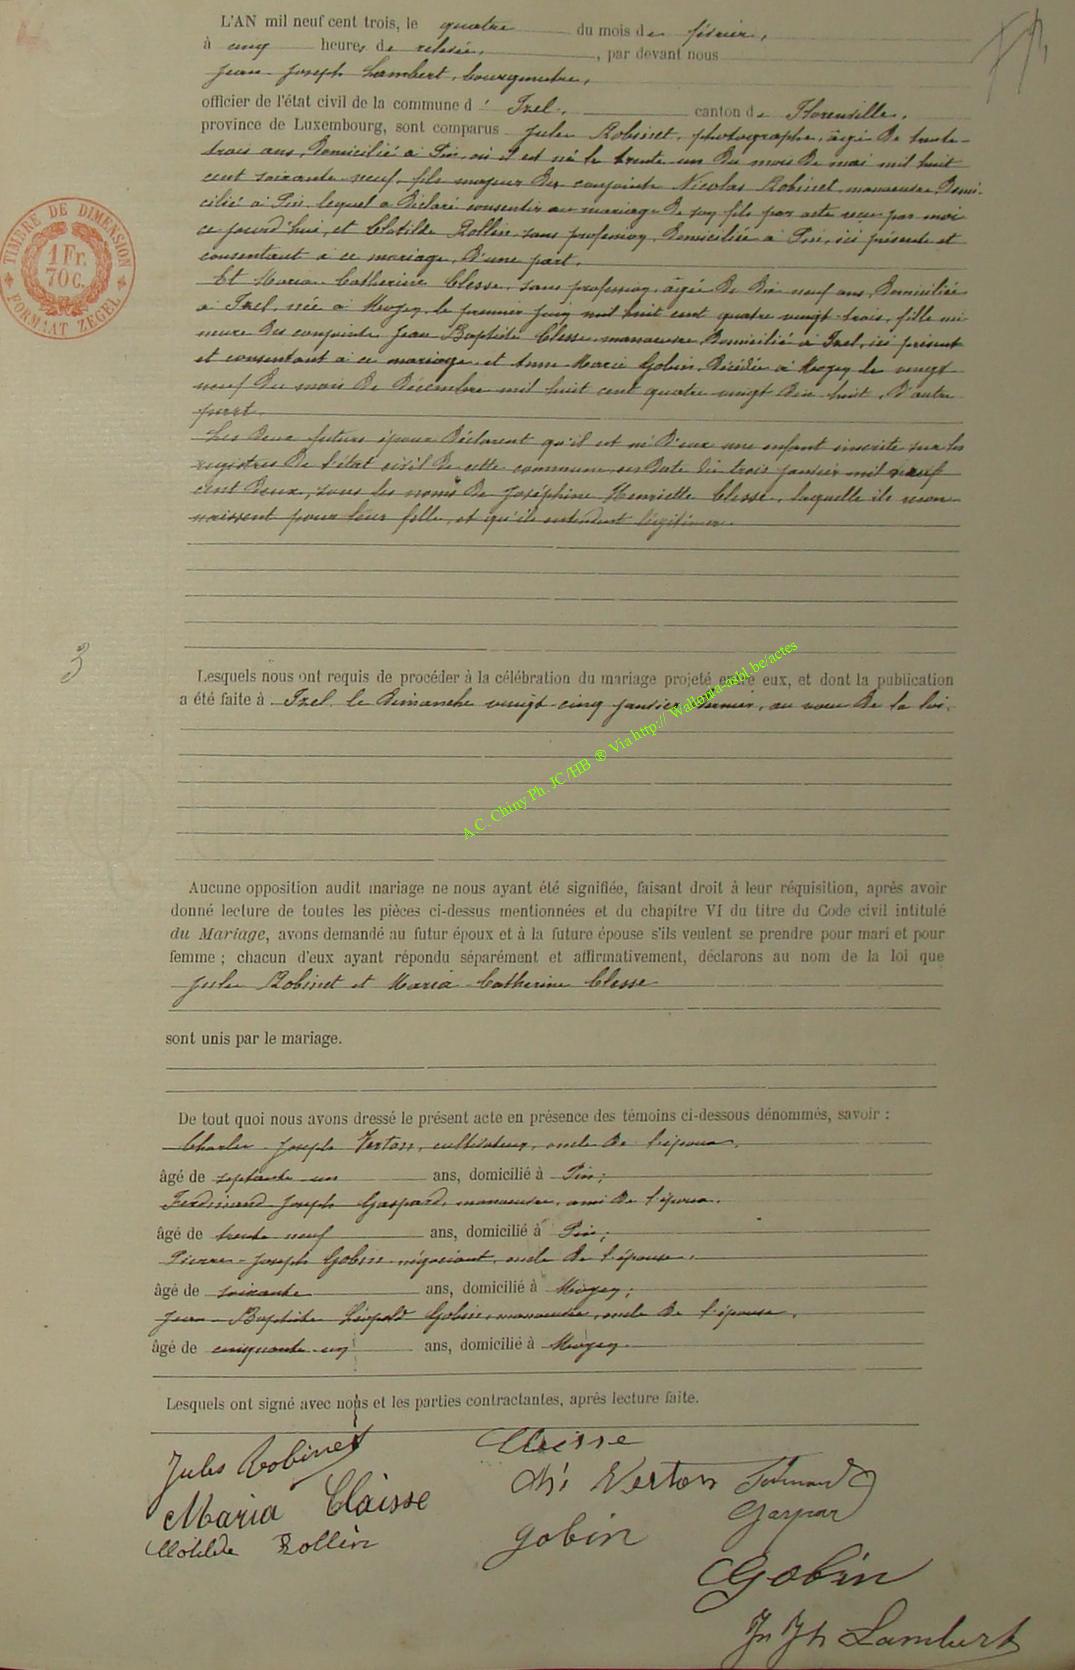 L'AN mil neuf cent trois, le quatre du mois de février,
à cinq heures de relevée, , par devant nous
Jean Joseph Lambert, bourgmestre,
officier de l'état civil de la commune d' Izel, canton de Florenville,
province de Luxembourg, sont comparus Jules Robinet, photographe, âgé de trente-
trois ans, domicilié à Pin, où il est né le trente un du mois de mai mil huit
cent soixante neuf, fils majeur des conjoints Nicolas Robinet, manoeuvre, domi-
cilié à Pin, lequel a déclaré consentir au mariage de son fils par acte reçu par moi
ce jourd'hui, et Clotilde Rollin, sans profession, domiciliée à Pin, ici présente et
consentant à ce mariage, d'une part.
Et Maria Catherine Clesse, sans profession, âgée de dix neuf ans, domiciliée
à Izel, née à Moyen, le premier juin mil huit cent quatre vingt trois, fille mi-
neure des conjoints Jean Baptiste Clesse, manoeuvre, domicilié à Izel, ici présent
et consentant à ce mariage, et Anne Marie Gobin, décédée à Moyen le vingt
neuf du mois de décembre mil huit cent quatre vingt dix huit, d'autre
part.
Les deux futurs époux déclarent qu'il est né d'eux une enfant inscrite sur les
registres de l'état civil de cette commune, en date du trois janvier mil neuf
cent deux, sous les noms de Joséphine Henriette Clesse, laquelle ils recon-
naissent pour leur fille, et qu'ils entendent légitimer.
3
Lesquels nous ont requis de procéder à la célébration du mariage projeté entre eux, et dont la publication
a été faite à Izel le dimanche vingt-cinq janvier dernier, au voeu de la loi.
Aucune opposition audit mariage ne nous ayant été signifiée, faisant droit à leur réquisition, après avoir
donné lecture de toutes les pièces ci-dessus mentionnées et du chapitre VI du titre du Code civil intitulé
du Mariage, avons demandé au futur époux et à la future épouse s'ils veulent se prendre pour mari et pour
femme ; chacun d'eux ayant répondu séparément et affirmativement, déclarons au nom de la loi que
Jules Robinet et Maria Catherine Clesse
sont unis par le mariage.
De tout quoi nous avons dressé le présent acte en présence des témoins ci-dessous dénommés, savoir :
Charles Joseph Verton, cultivateur, oncle de l'époux,
âgé de septante un ans, domicilié à Pin;
Ferdinand Joseph Gaspard, manoeuvre, ami de l'époux.
âgé de trente neuf ans, domicilié à Pin;
Pierre-Joseph Gobin négociant, oncle de l'épouse,
âgé de soixante ans, domicilié à Moyen;
Jean-Baptiste Léopold Gobin, manoeuvre, oncle de l'épouse,
âgé de cinquante-un ans, domicilié à Moyen
Lesquels ont signé avec nous et les parties contractantes, après lecture faite.
Jules Robinet
Maria Claisse
Clotilde Rollin
Claisse
Verton
Gaspar
Gobin
Gobin
Jn Jh Lambert
TIMBRE DE DIMENSION
1 Fr.
70 C.
FORMAAT ZEGEL
A.C. Chiny Ph. JC/HB ® Via http:// Wallonia-asbl.be/actes